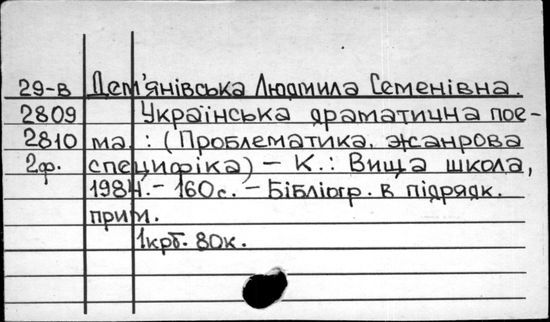 29-в Дем'янівська Людмила Семенівна.
2809 Українська драматична пое-
2810 ма. : (Проблематика, жанрова
2ф. специфіка) – К.: Вища школа,
1984. – 160с. – Бібліогр. в підрядк.
прим.
1крб. 80к.